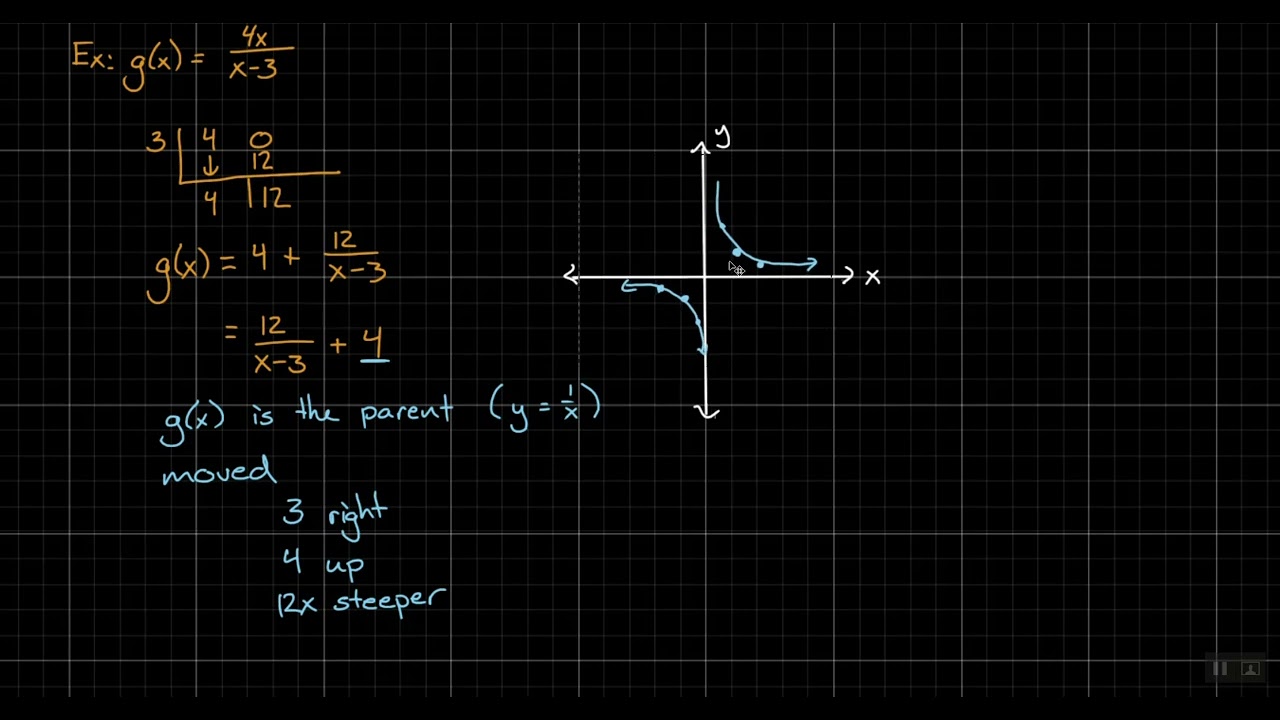 Ex: g(x) = 4x/(x-3)
3 | 4 0
↓ 12
4 | 12
g(x) = 4 + 12/(x-3)
= 12/(x-3) + 4
g(x) is the parent (y = 1/x)
moved
3 right
4 up
12x steeper
y
x